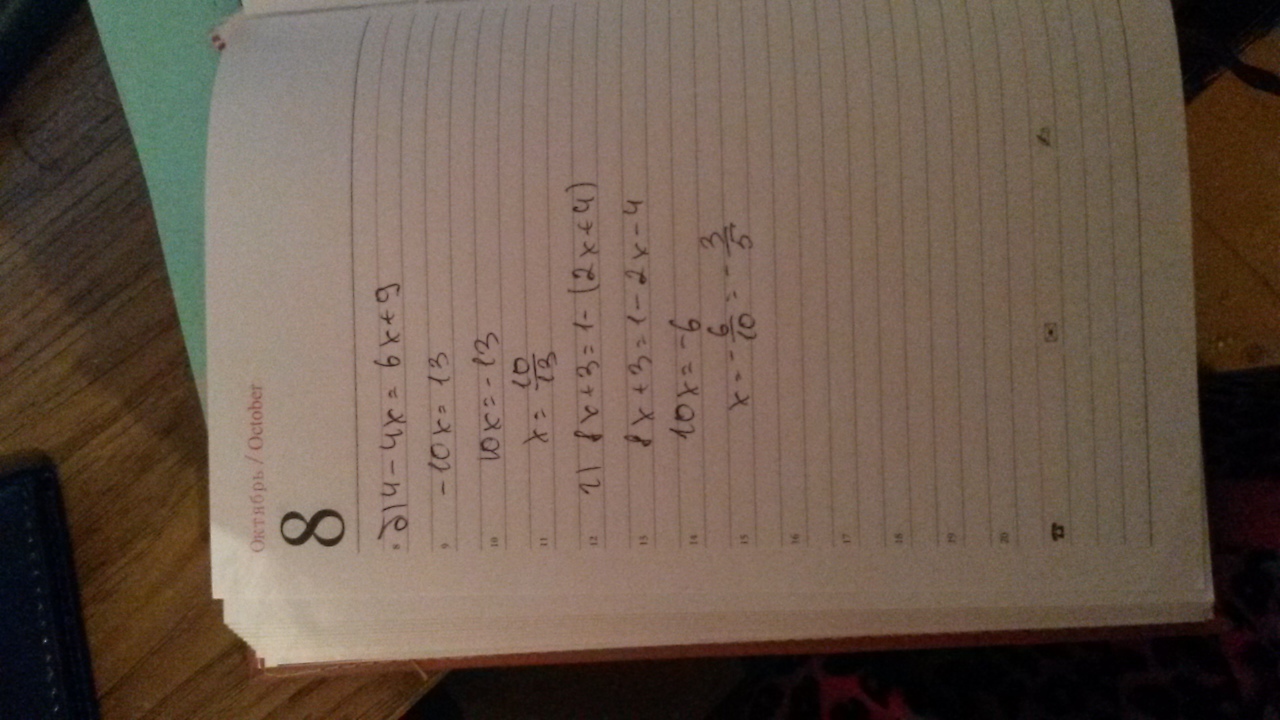 Октябрь / October
8
8 д) 4 - 4x = 6x + 9
9 -10x = 13
10 10x = -13
11 x = 10/13
12 г) 8x + 3 = 1 - (2x + 4)
13 8x + 3 = 1 - 2x - 4
14 10x = -6
15 x = -6/10 = -3/5
16
17
18
19
20